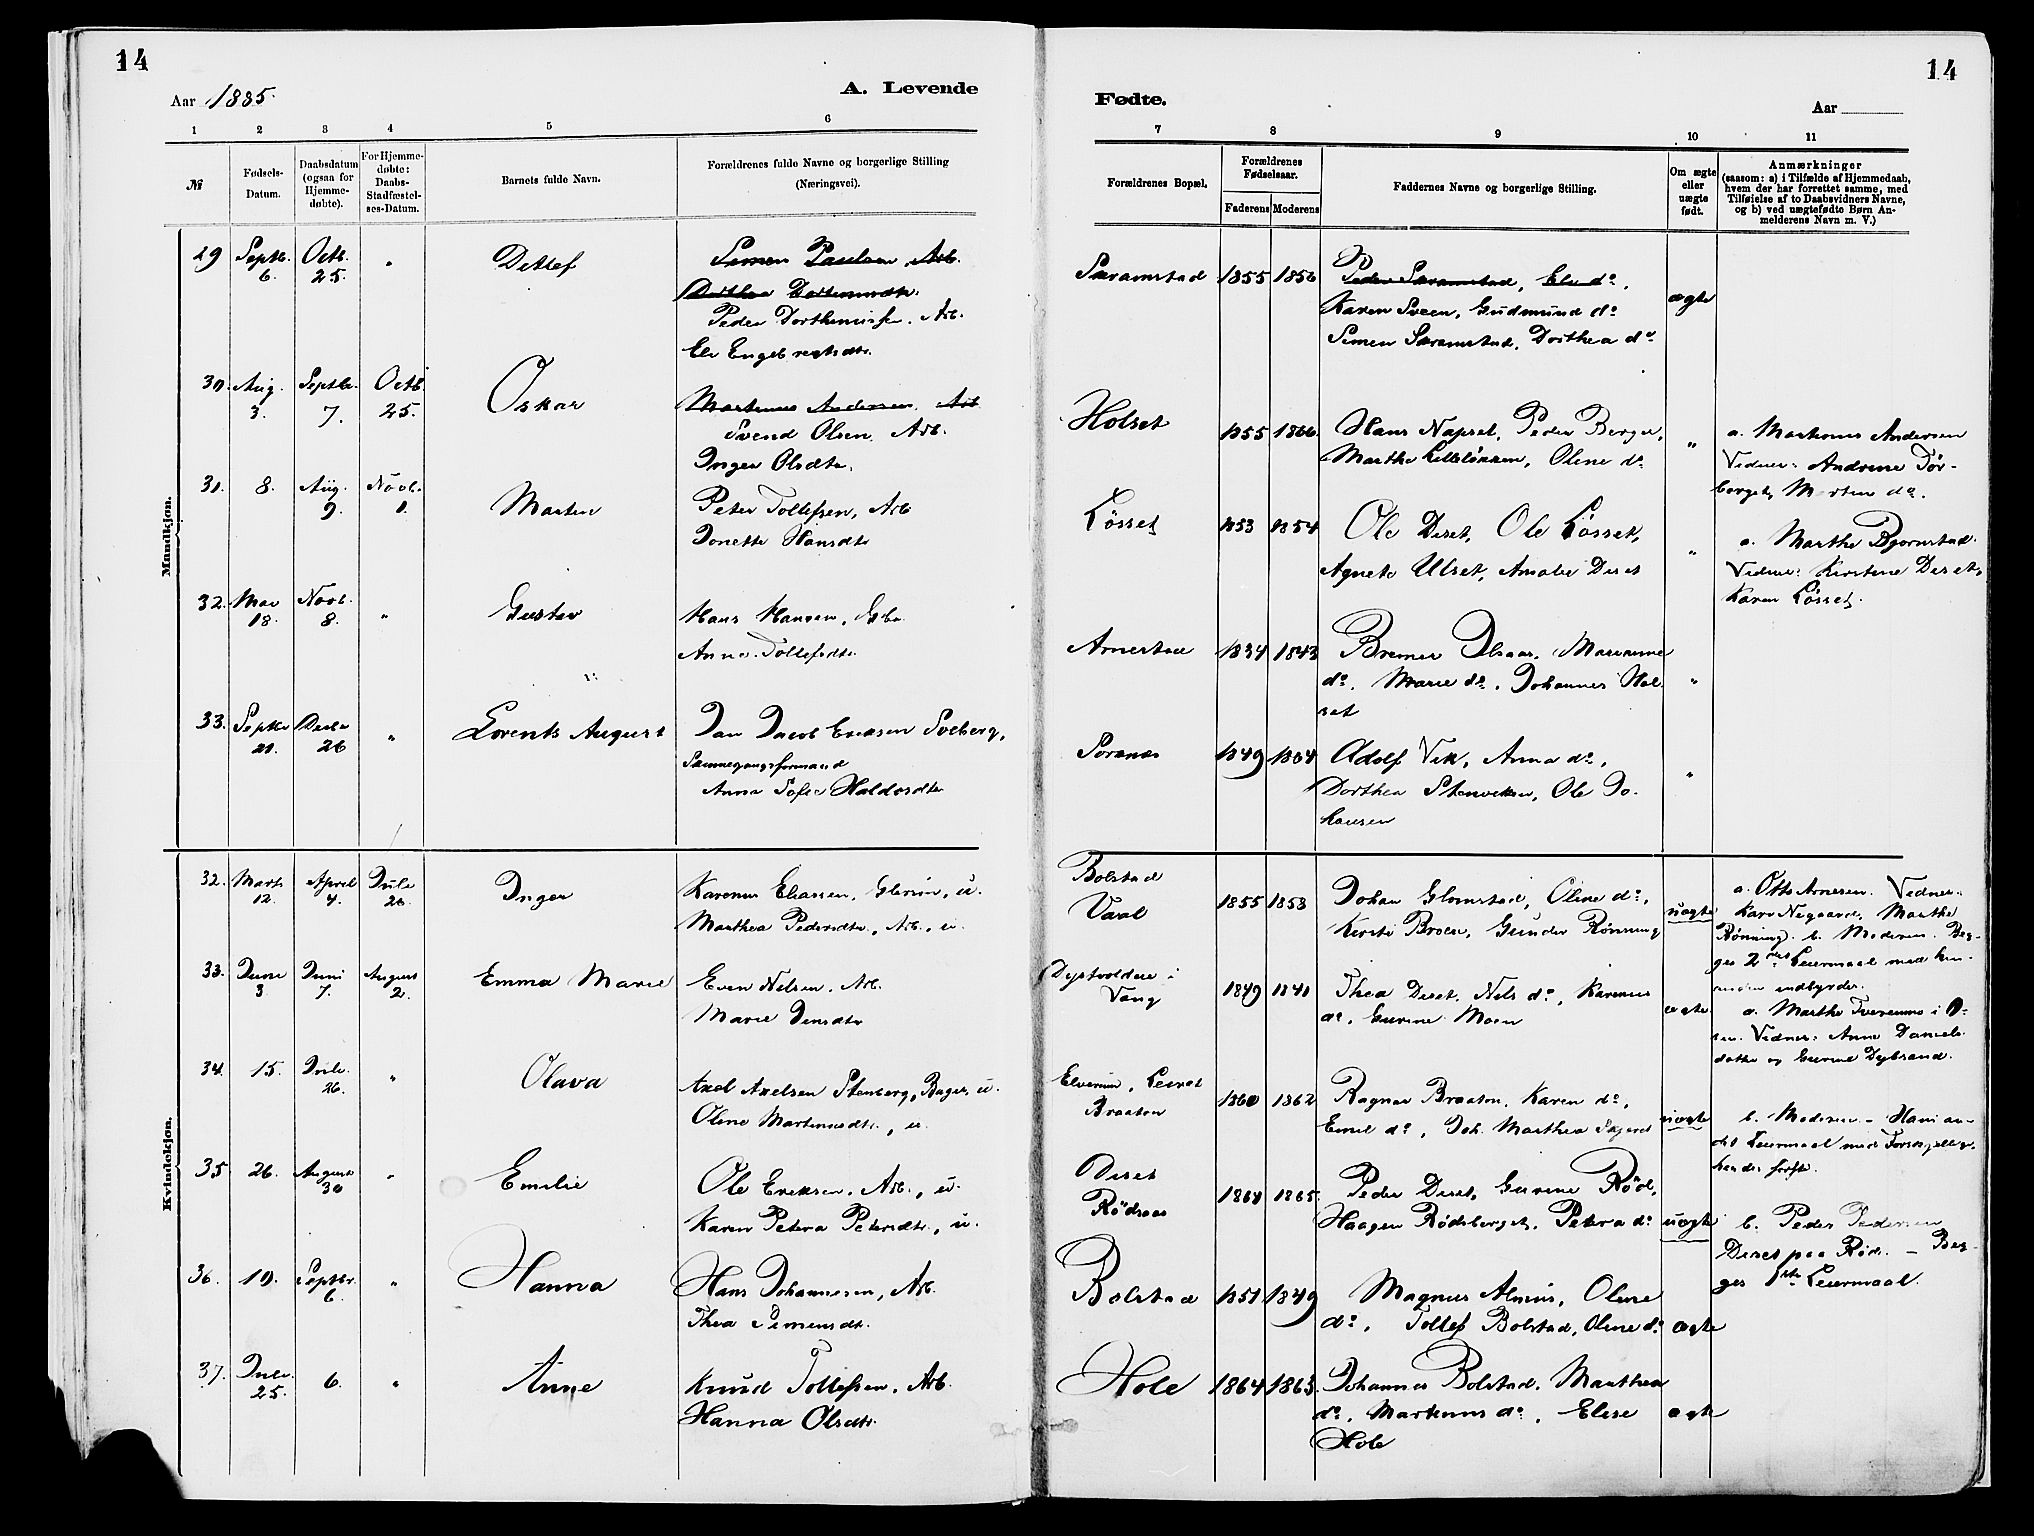 14
14
Aar 1885.
A. Levende
Fødte.
Aar
1 2 3 4 5 6
7 8 9 10 11
№
Fødsels-
Datum.
Daabsdatum
(ogsaa for
Hjemme-
døbte).
For Hjemme-
døbte:
Daabs-
Stadfæstel-
ses-Datum.
Barnets fulde Navn.
Forældrenes fulde Navne og borgerlige Stilling
(Næringsvei).
Forældrenes Bopæl.
Forældrenes
Fødselsaar.
Faderens Moderens
Faddernes Navne og borgerlige Stilling.
Om ægte
eller
uægte
født.
Anmærkninger
(saasom: a) i Tilfælde af Hjemmedaab,
hvem der har forrettet samme, med
Tilføielse af to Daabsvidners Navne,
og b) ved uægtefødte Børn An-
melderens Navn m. V.)
Mandkjøn.
29 Septbr. 6. Octb. 25. " Detlef
Simen Paulsen, Arb.
Dorthea
Peder Arb.
Eli Engebretsdtr.
1855 1856
Karen Sveen, Gudmund do
Simen Dorthea do
ægte
30. Aug. 3. Septbr. 7. Octb. 25. Oskar
Martinus Andersen. Arb
Svend Olsen, Arb.
Inger Olsdtr.
Holset 1855 1866.
Hans Napset, Peder Berger,
Marthe Lilleløkken, Oline do
"
a. Martinus Andersen
Vidner: Andrine Tør-
berget, Morten do.
31. 8. Aug. 9. Novb. 1. Morten
Peter Tollefsen, Arb
Jonette Hansdtr
Løsset 1853 1854
Ole Deset, Ole Løsset,
Agnete Ulset, Amalie Deset
"
a. Marthe Bjørnstad.
Vidner: Kirstine Deset,
Karen Løsset.
32. Mai 18. Novb. 8. " Gustav
Hans Hansen,
Anne Tollefsdtr.
Arnestad 1834 1843
do, Marie do, Johannes Hol-
set
"
33. Septbr 21. Decbr 26 " Lorents August
Jan Jacob Eriksen Solberg,
Anna Sofie Haldorsdtr
Sorknes 1849 1864
Adolf Vik, Anna do,
Dorthea Stenviken, Ole Jo-
hansen
"
Kvindekjøn.
32. Marts 12. April 4. Juli 26. Inger
Karenus Eliassen, u.
Marthea Pedersdtr., Arb., u.
Bolstad
Vaal
1855 1853
Johan Glomstad, Oline do,
Kersti Broen, Gunder Rønning
uægte
a. Otto Arnesen. Vidner:
Kari Nygaard, Marthe
Rønning. b. Moderen. Beg-
ges 2det Leiermaal med hin-
anden indbyrdes.
33. Juni 3. Juni 7. August 2. Emma Marie
Even Nilsen, Arb.
Marie Jensdtr
Dystvoldeie i
Vang
1849 1841
Thea Deset, Nils do, Karenus
do, Gurine Moen
ægte.
a. Marthe i O-
sen. Vidner: Anne Daniels-
datter og Gurine Dybsand.
34. 15. Juli 26. " Olava
Axel Axelsen Stenberg, Bager, u.
Oline Martinusdtr., u.
Elverum,
Braaten
1860 1862
Ragna Braaten, Karen do,
Emil do, Joh. Marthea
uægte
b. Moderen - Hans an-
det Leiermaal med Forskjellig,
hendes første.
35 26. August 30 " Emilie
Ole Eriksen, Arb., u.
Karen Petera Petersdtr., u.
Deset
Rødsaas
1864 1865.
Peder Deset, Gurine Rød,
Haagen Rødsberget, Petera do
uægte
b. Peder Pedersen
Deset paa Rød. - Beg-
ges 1ste Leiermaal.
36. 19. Septbr. 6. " Hanna
Hans Johannesen, Arb.
Thea Simensdtr.
Bolstad 1851 1849
Magnus Oline
do, Tollef Bolstad, Oline do
ægte
37. Juli 25. 6. " Anne
Knud Tollefsen, Arb.
Hanna Olsdtr.
Hole 1864 1863.
Johannes Bolstad, Marthea
do, Martinus do, Elise
Hole
ægte